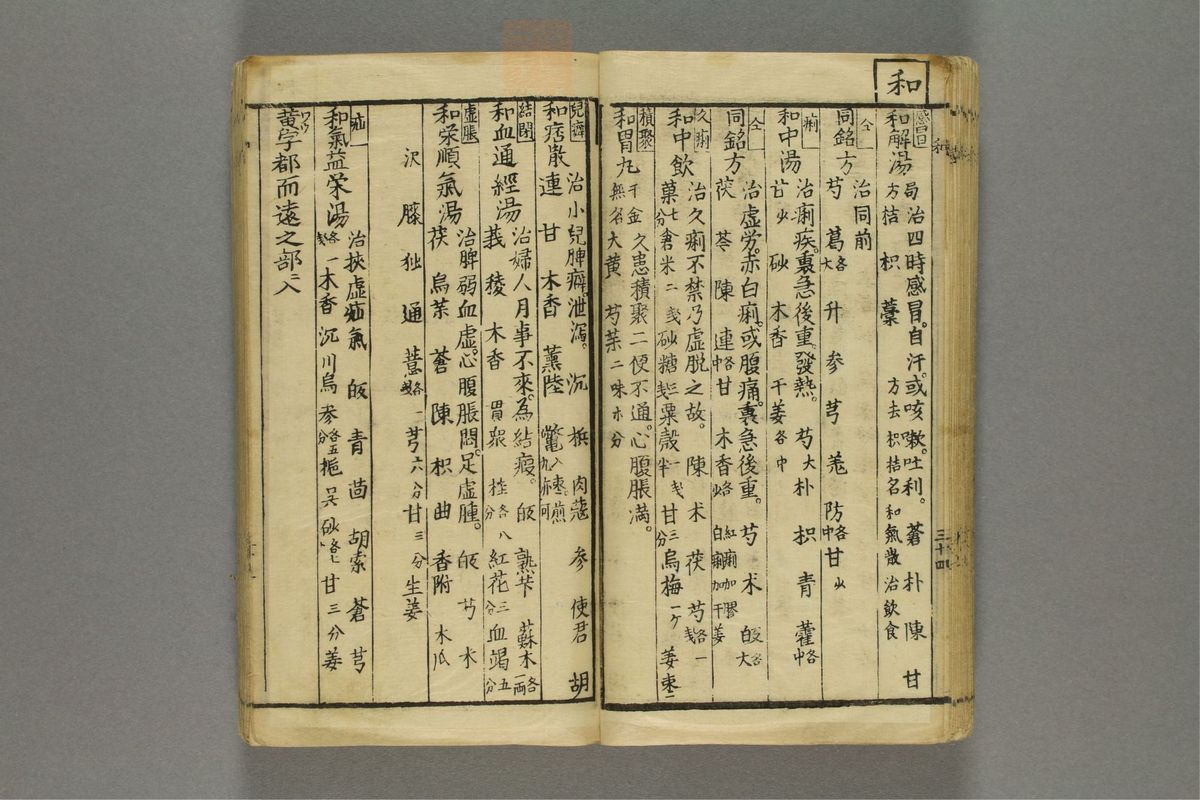 和
感冒
和解湯 局方 治四時感冒。自汗。或咳嗽。吐利。 蒼 朴 陳 甘
桔 枳 藁 方去枳桔名和氣散治飲食
仝
同銘方 治同前
芍 葛各大 升 參 芎 羌 防各中 甘少
痢
和中湯 治痢疾。裏急後重。發熱。 芍大 朴 枳 青 藿各中
甘少 砂 木香 干姜各中
仝
同銘方 治虚労。赤白痢。或腹痛。裏急後重。 芍 朮 皈各大
茯苓 陳 連各中 甘 木香各少 紅痢加膠 白痢加干姜
久痢
和中飲 治久痢不禁乃虚脱之故。 陳 朮 茯 芍各一戔
菓七分 倉米二戔 砂糖三戔 粟殻一戔半 甘三分 烏梅一ケ 姜 枣二
積聚
和胃丸 千金 久患積聚二便不通。心腹脹満。
無名 大黄 芍 茱 二味 朩分
兒癖
和痞散 治小兒脾癖。泄瀉。 沉 梹 肉蔻 參 使君 胡
連 甘 木香 薫陸 鼈
結閉
和血通經湯 治婦人月事不來。為結瘕。 皈 熟苄 蘇木各一両
莪 稜 木香 貫衆 桂各八分 紅花三分 血竭五分
虚脹
和栄順氣湯 治脾弱血虚。心腹脹悶。足虚腫。 皈 芍 朮
茯 烏 茱 蒼 陳 枳 曲 香附 木瓜
沢 膝 独 通 薏各一戔 芎六分 甘三分 生姜
疝
和氣益栄湯 治挾虚疝氣 皈 青 茴 胡索 蒼 芎
各一戔 木香 沉 川烏 參各五分 梔 吴 砂各七 甘三分 姜
黄字都而遠之部ニ入
三十四